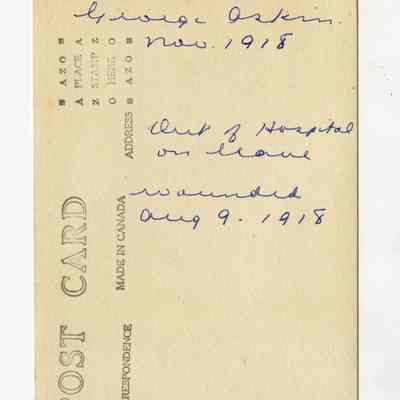 George Askin.
Nov. 1918
Out of Hospital
on leave
wounded
Aug 9. 1918
POST CARD
CORRESPONDENCE
MADE IN CANADA
ADDRESS
AZO
PLACE
STAMP
HERE
AZO